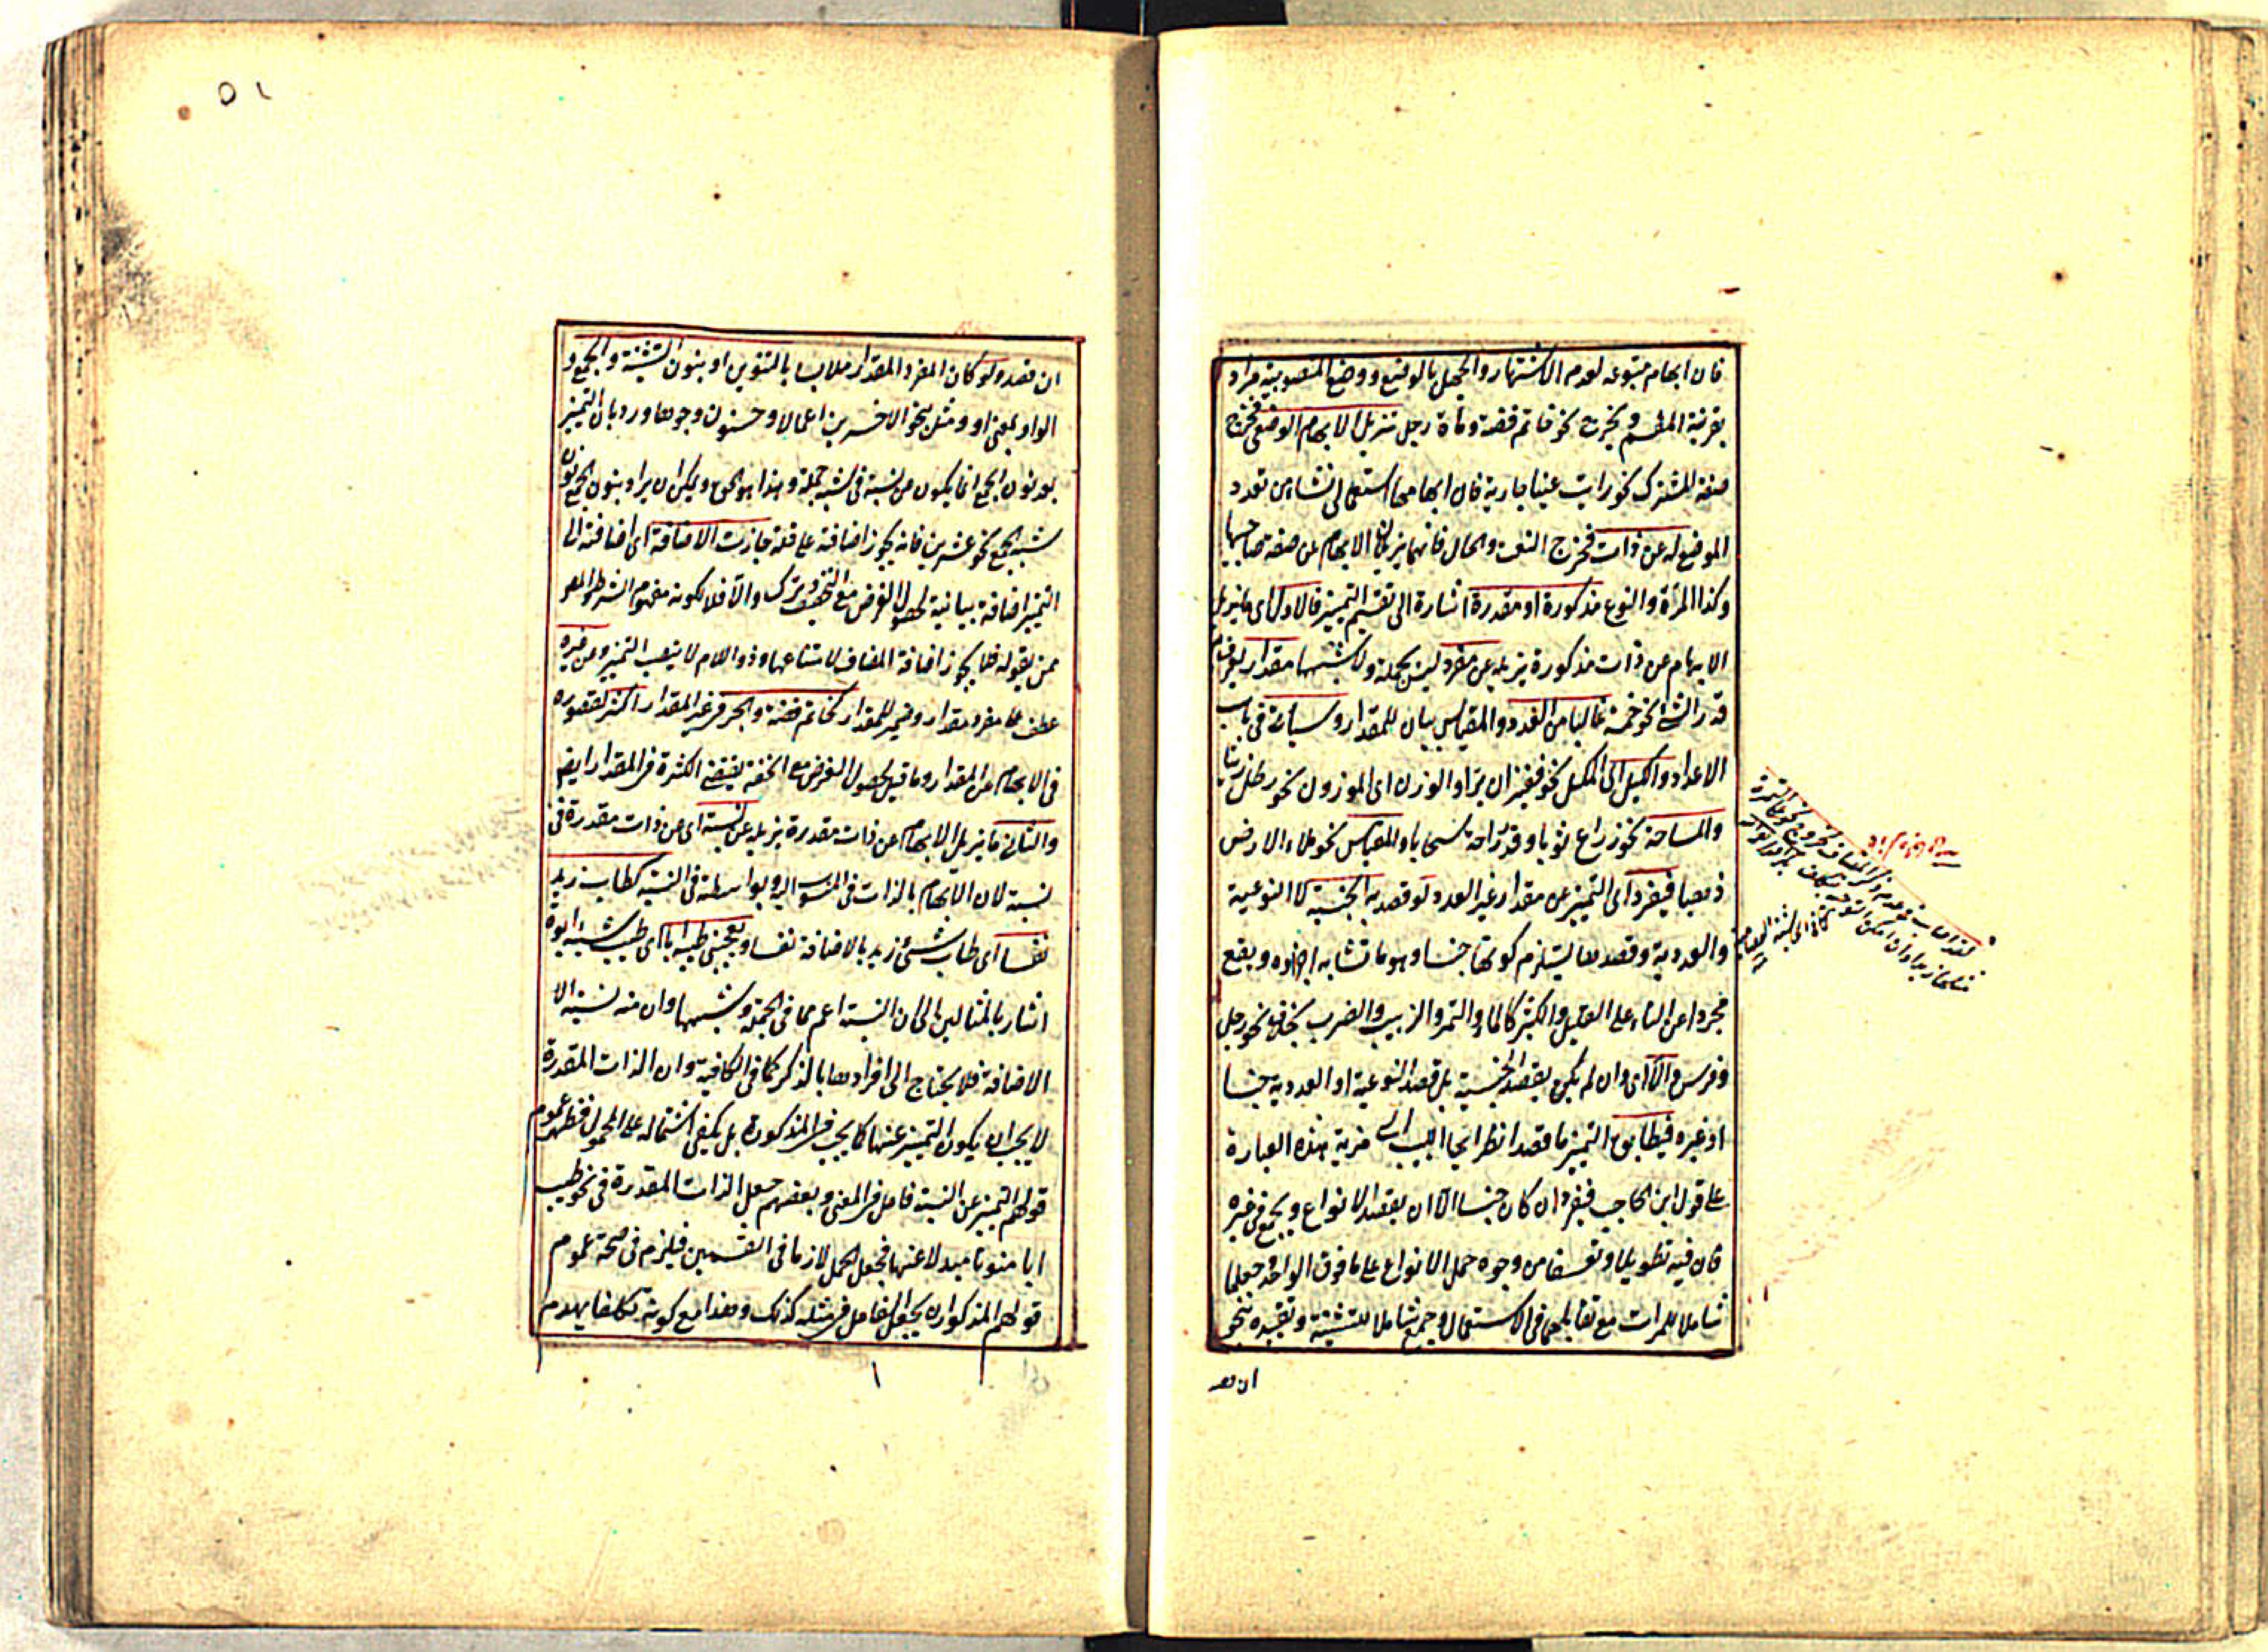 فان ابهام متبوعه لعدم الاشتهار والجهل بالوضع ووضع المنصوبية مراد
بقرينة المقسم ويخرج نحو خاتم فضة ومأة رجل يزيل الابهام الوضعى فخرج
صفة المشترك نحو رايت عينا جارية فان ابهامها استعمالى نشاء من تعدد
الموضوع له عن ذات فخرج النعت والحال فانهما يزيلان الابهام عن صفة صاحبها
وكذا المرأة والنوع مذكورة او مقدرة اشارة الى تقسيم التمييز فالاول اى ما يزيل
الابهام عن ذات مذكورة يزيله عن مفرد ليس بجملة ولا شبهها مقدار يعرف به
قدر الشئ نحو خمسة غالبا من العدد والمقياس بيان للمقدار وسيأتى فى باب
الاعداد والكيل اى المكيل نحو قفيزان برا والوزن اى الموزون نحو رطل زيتا
والمساحة نحو ذراع ثوبا وقدر راحة سحابا والمقياس نحو ملاء الارض
ذهبا فيفرد اى التمييز عن مقدار غير العدد لو قصد به الجنسية لا النوعية
والعددية وقصدها يستلزم كونها جنسا وهو ما تشابه اجزاؤه ويقع
مجردا عن التاء على القليل والكثير كالماء والتمر والزبيب والضرب بخلاف نحو رجل
وفرس والا اى وان لم يكن بقصد الجنسية بل قصد النوعية او العددية جنسا
او غيره فيطابق التمييز ما قصد انظر ايها اللبيب الى مزية هذه العبارة
على قول ابن الحاجب فيفرد ان كان جنسا الا ان يقصد الانواع ويجمع فى غيره
فان فيه تطويلا وتعسفا من وجوه حمل الانواع على ما فوق الواحد وجعلها
شاملا للمرات مع تقابلهما فى الاستعمال وجمع شاملا للتثنية وتقييده بنحو
ان قصد
٥١
ان قصد ولو كان المفرد المقدار ملابسا بالتنوين او بنون التثنية والجمع و
الواو بمعنى او ومثل بنحو الاخسرين اعمالا وحسنون وجوها ورد بان التمييز
بعد نون الجمع انما يكون من نسبة فى شبه جملة وهذا هو الحق ويمكن ان يراد بنون الجمع نون
شبه الجمع نحو عشرين فانه يجوز اضافته على قلة جازت الاضافة اى اضافته الى
التمييز اضافة بيانية لحصول الغرض مع التخفيف وترك والا فلا لكونه مفهوم الشرط والمعرف
عن بقوله فلا يجوز اضافة المضاف لامتناعها وذو اللام لا ينصب التمييز وعن غيره
عطف على مفرد مقدار وغير للمقدار كخاتم فضة والجر فى غير المقدار اكثر لقصوره
فى الابهام عن المقدار وما قيل لحصول الغرض مع الخفة يقتضى الكثرة فى المقدار ايضا
والثانى ما يزيل الابهام عن ذات مقدرة يزيله عن نسبة اى عن ذات مقدرة فى
نسبة لان الابهام بالذات فى المنسوب اليه وبواسطته فى النسبة كطاب زيد
نفسا اى طاب شئ زيد بالاضافة نفسا ويعجبنى طيبه ابا اى طيب شئ ابوة
اشار بالمثالين الى ان النسبة اعم مما فى الجملة وشبهها وان منه نسبة الا
الاضافة فلا يحتاج الى افرادها بالذكر كما فى الكافية وان الذات المقدرة
لا يجب ان يكون التمييز عنها كما يجب فى المذكورة بل يكفى اشتماله على المحمول فظهر عموم
قولهم التمييز عن النسبة فاعل فى المعنى وبعضهم جعل الذات المقدرة فى نحو طيب
ابا منونا مبدلا عنها فجعل الحمل لازما فى القسمين فيلزم فى صحة عموم
قولهم المذكور ان يجعل الفاعل فى مثله كذلك وهذا مع كونه تكلفا يهدم